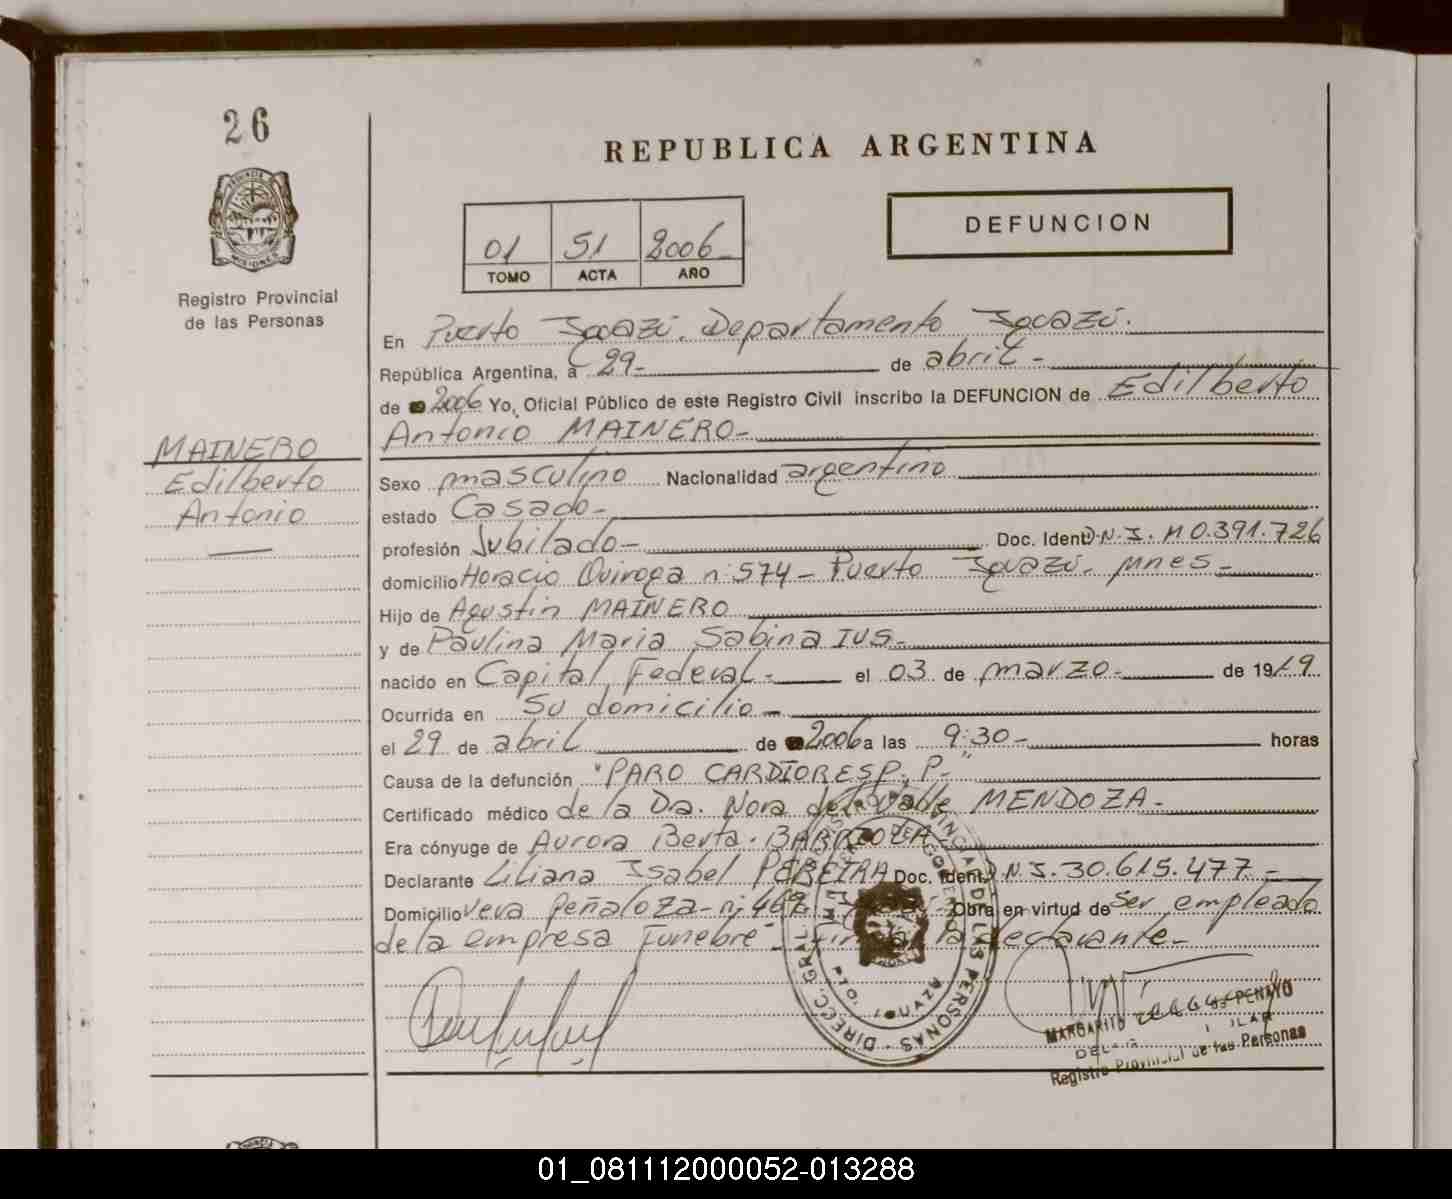 26
REPUBLICA ARGENTINA
DEFUNCION
01 51 2006
TOMO ACTA AÑO
Registro Provincial
de las Personas
En Puerto Iguazú. Departamento Iguazú.
República Argentina, a 29- de abril-
de 2006 Yo, Oficial Público de este Registro Civil inscribo la DEFUNCION de Edilberto
Antonio MAINERO-
MAINERO
Edilberto
Antonio
Sexo masculino Nacionalidad argentino
estado Casado-
profesión Jubilado- Doc. Ident. D.N.I. M 0.391.726
domicilio Horacio Quiroga nº 574- Puerto Iguazú. Mnes-
Hijo de Agustin MAINERO
y de Paulina Maria Sabina IUS-
nacido en Capital Federal- el 03 de marzo- de 1919
Ocurrida en Su domicilio-
el 29 de abril de 2006 a las 9:30- horas
Causa de la defunción "PARO CARDIORESP. P-"
Certificado médico de la Dra. Nora del Valle MENDOZA-
Era cónyuge de Aurora Berta BARRIOZA-
Declarante Liliana Isabel PEREIRA Doc. Ident. D.N.I. 30.615.477-
Domicilio Vera Peñaloza- nº 469 Obra en virtud de Ser empleado
de la empresa Funebre- firma la declarante-
DIRECC. GRAL. PROVINCIAL DE LAS PERSONAS
PTO. IGUAZU
MARGARITO PENAYO
Registro Provincial de las Personas
01_081112000052-013288